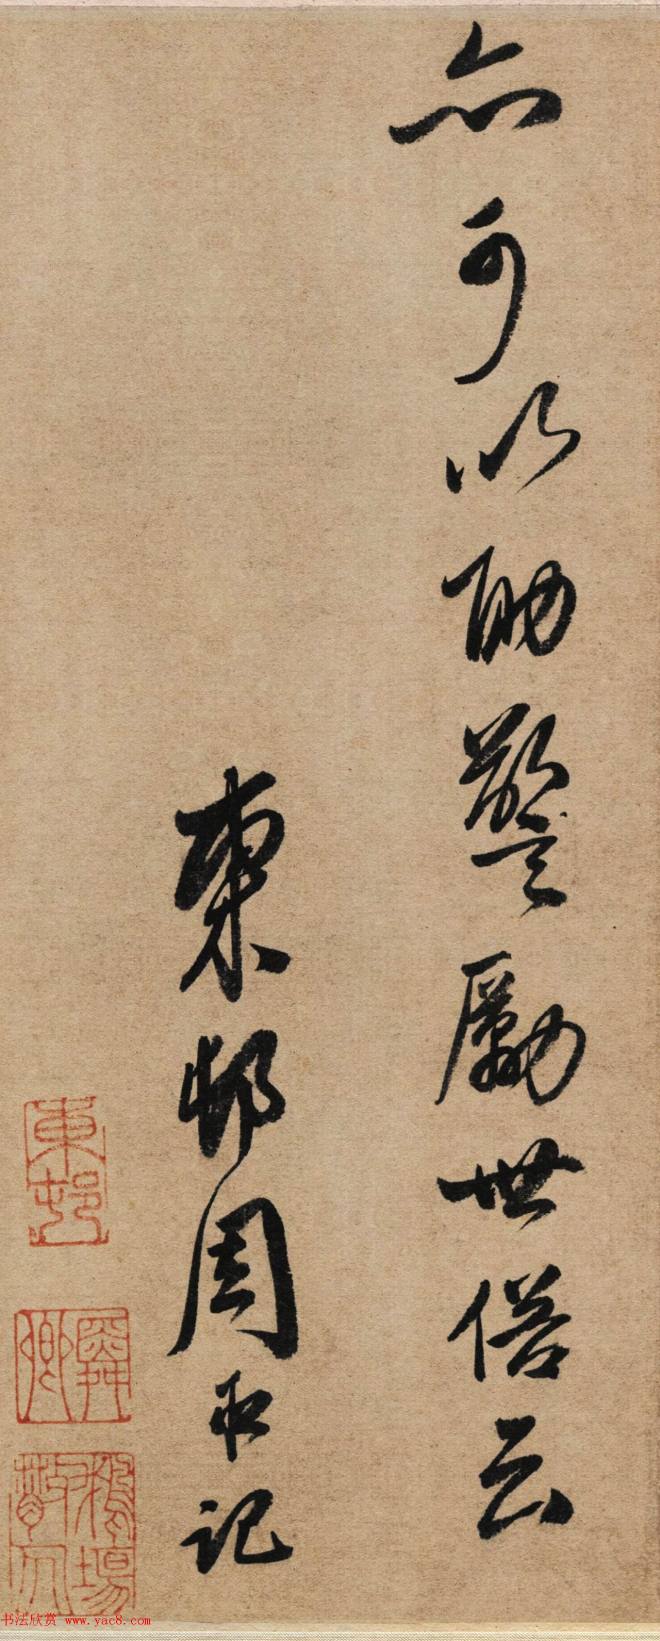 亦可以助警勵世俗云
東邨周臣記
東邨
舜卿
鵝場散人
书法欣赏 www.yac8.com